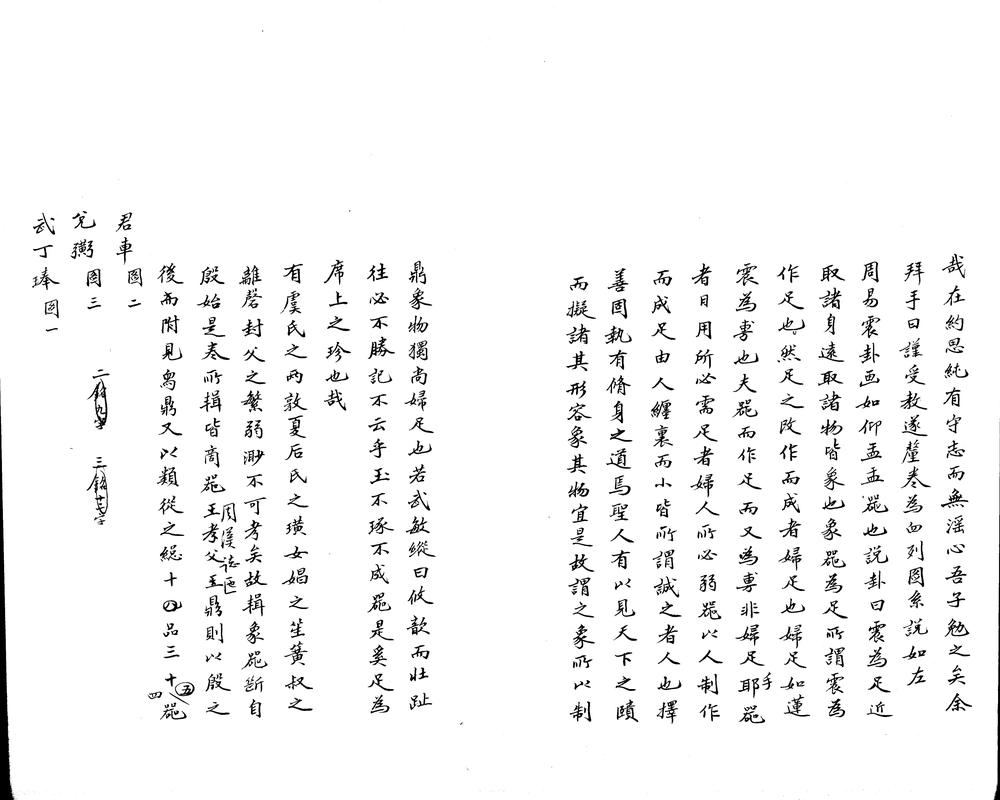 哉在約思純有守志而無滛心吾子勉之矣余
拜手曰謹受教遂釐卷為四列圖系說如左
周易震卦画如仰盂盂噐也說卦曰震為足近
取諸身遠取諸物皆象也象噐為足所謂震為
作足也然足之改作而成者婦足也婦足如蓮
震為旉也夫噐而作足而又為旉非婦足耶噐
手
者日用所必需足者婦人所必弱噐以人制作
而成足由人纏裹而小皆所謂誠之者人也擇
善固執有脩身之道焉聖人有以見天下之賾
而擬諸其形容象其物宜是故謂之象所以制
鼎象物獨尚婦足也若武敏縱曰攸歆而壯趾
往必不勝記不云乎玉不琢不成噐是奚足為
席上之珍也哉
有虞氏之兩敦夏后氏之璜女媧之笙簧叔之
離磬封父之繁弱渺不可考矣故輯象噐斷自
周僕
殷始是卷所輯皆商噐王孝父王鼎則以殷之
後而附見焉鼎又以類從之總十四品三十五噐
四
君車圖二
兌鬻圖三
二銘九字
三銘廿六字
武丁琫圖一